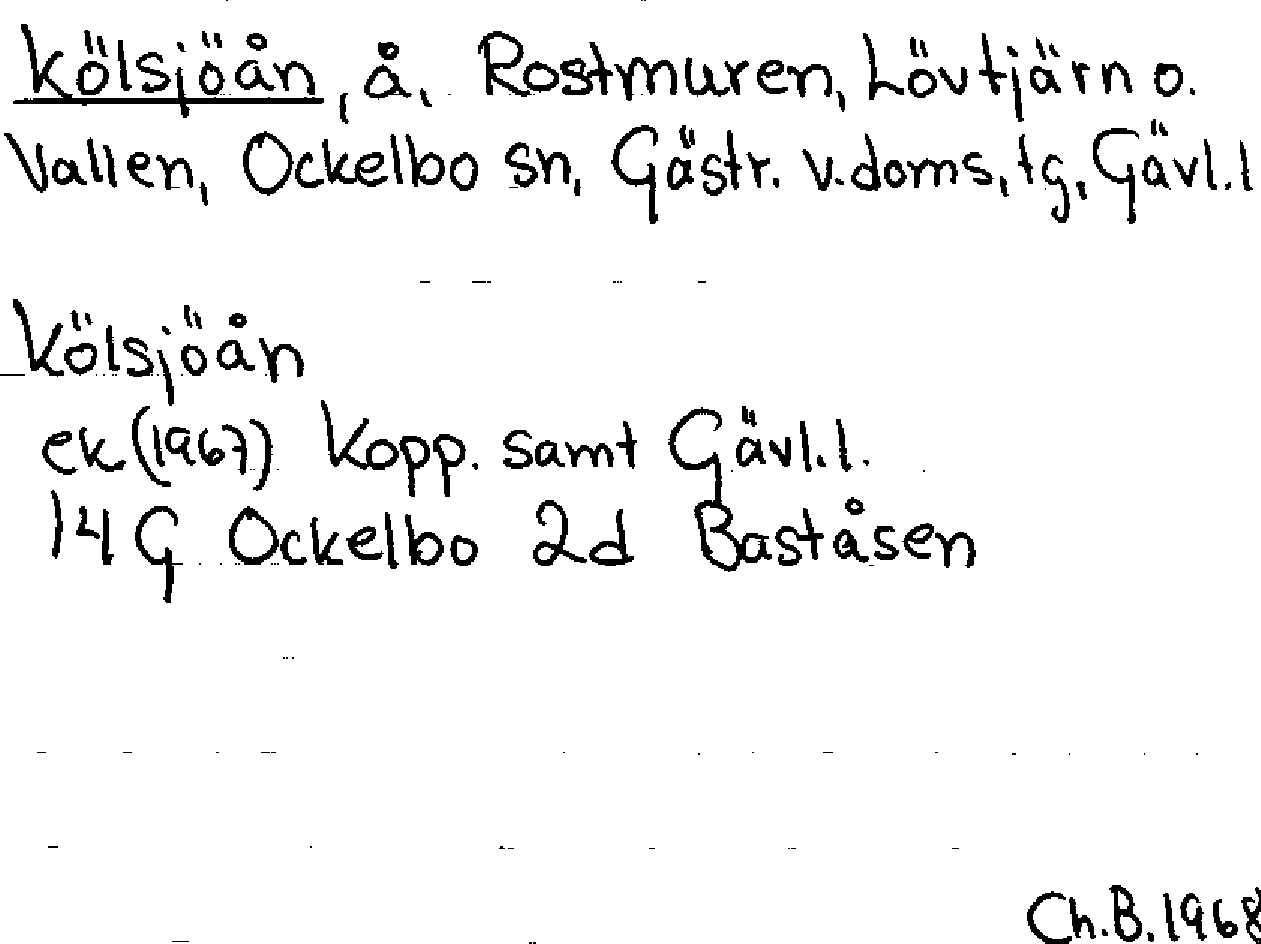 Kölsjöån, å, Rostmuren, Lövtjärn o.
Vallen, Ockelbo sn, Gästr. v. doms, tg, Gävl. l
Kölsjöån
ek (1967) Kopp. samt Gävl. l.
14 G Ockelbo 2d Baståsen
Ch. B. 1968